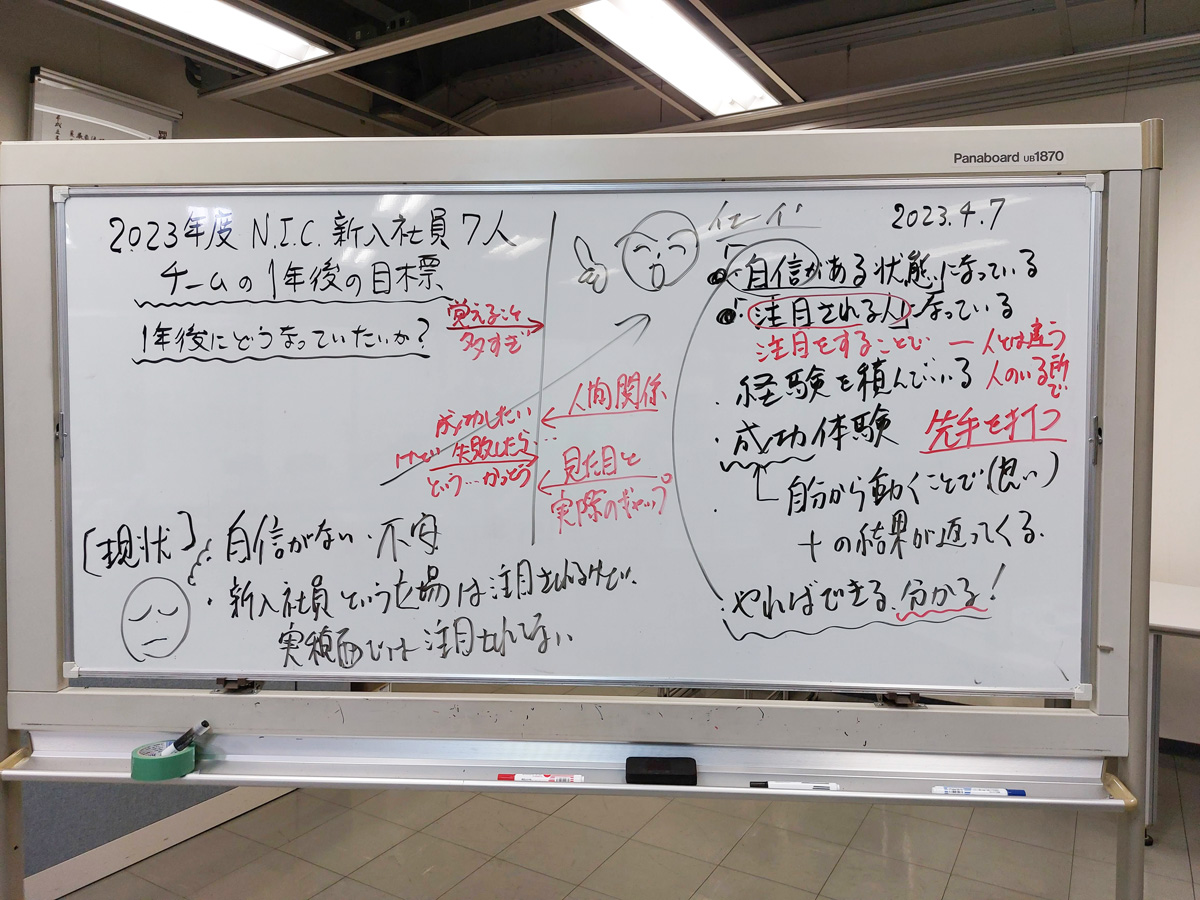 Panaboard UB1870
2023年度 N.I.C. 新入社員 7人
チームの1年後の目標
1年後にどうなっていたいか?
覚えること
多すぎ
成功したい
けど 失敗したら…
という…かっとう
人間関係
見た目と
実際のギャップ
[現状]
自信がない・不安
・新入社員という立場は注目されるけど、
実績面では注目されてない
2023.4.7
・「自信がある状態」になっている
・「注目される人」になっている
注目をすることで 一人とは違う
人のいる所で
・経験を積んでいる
・成功体験
先手を打つ
自分から動くことで(良い)
+の結果が返ってくる.
・やればできる、分かる!